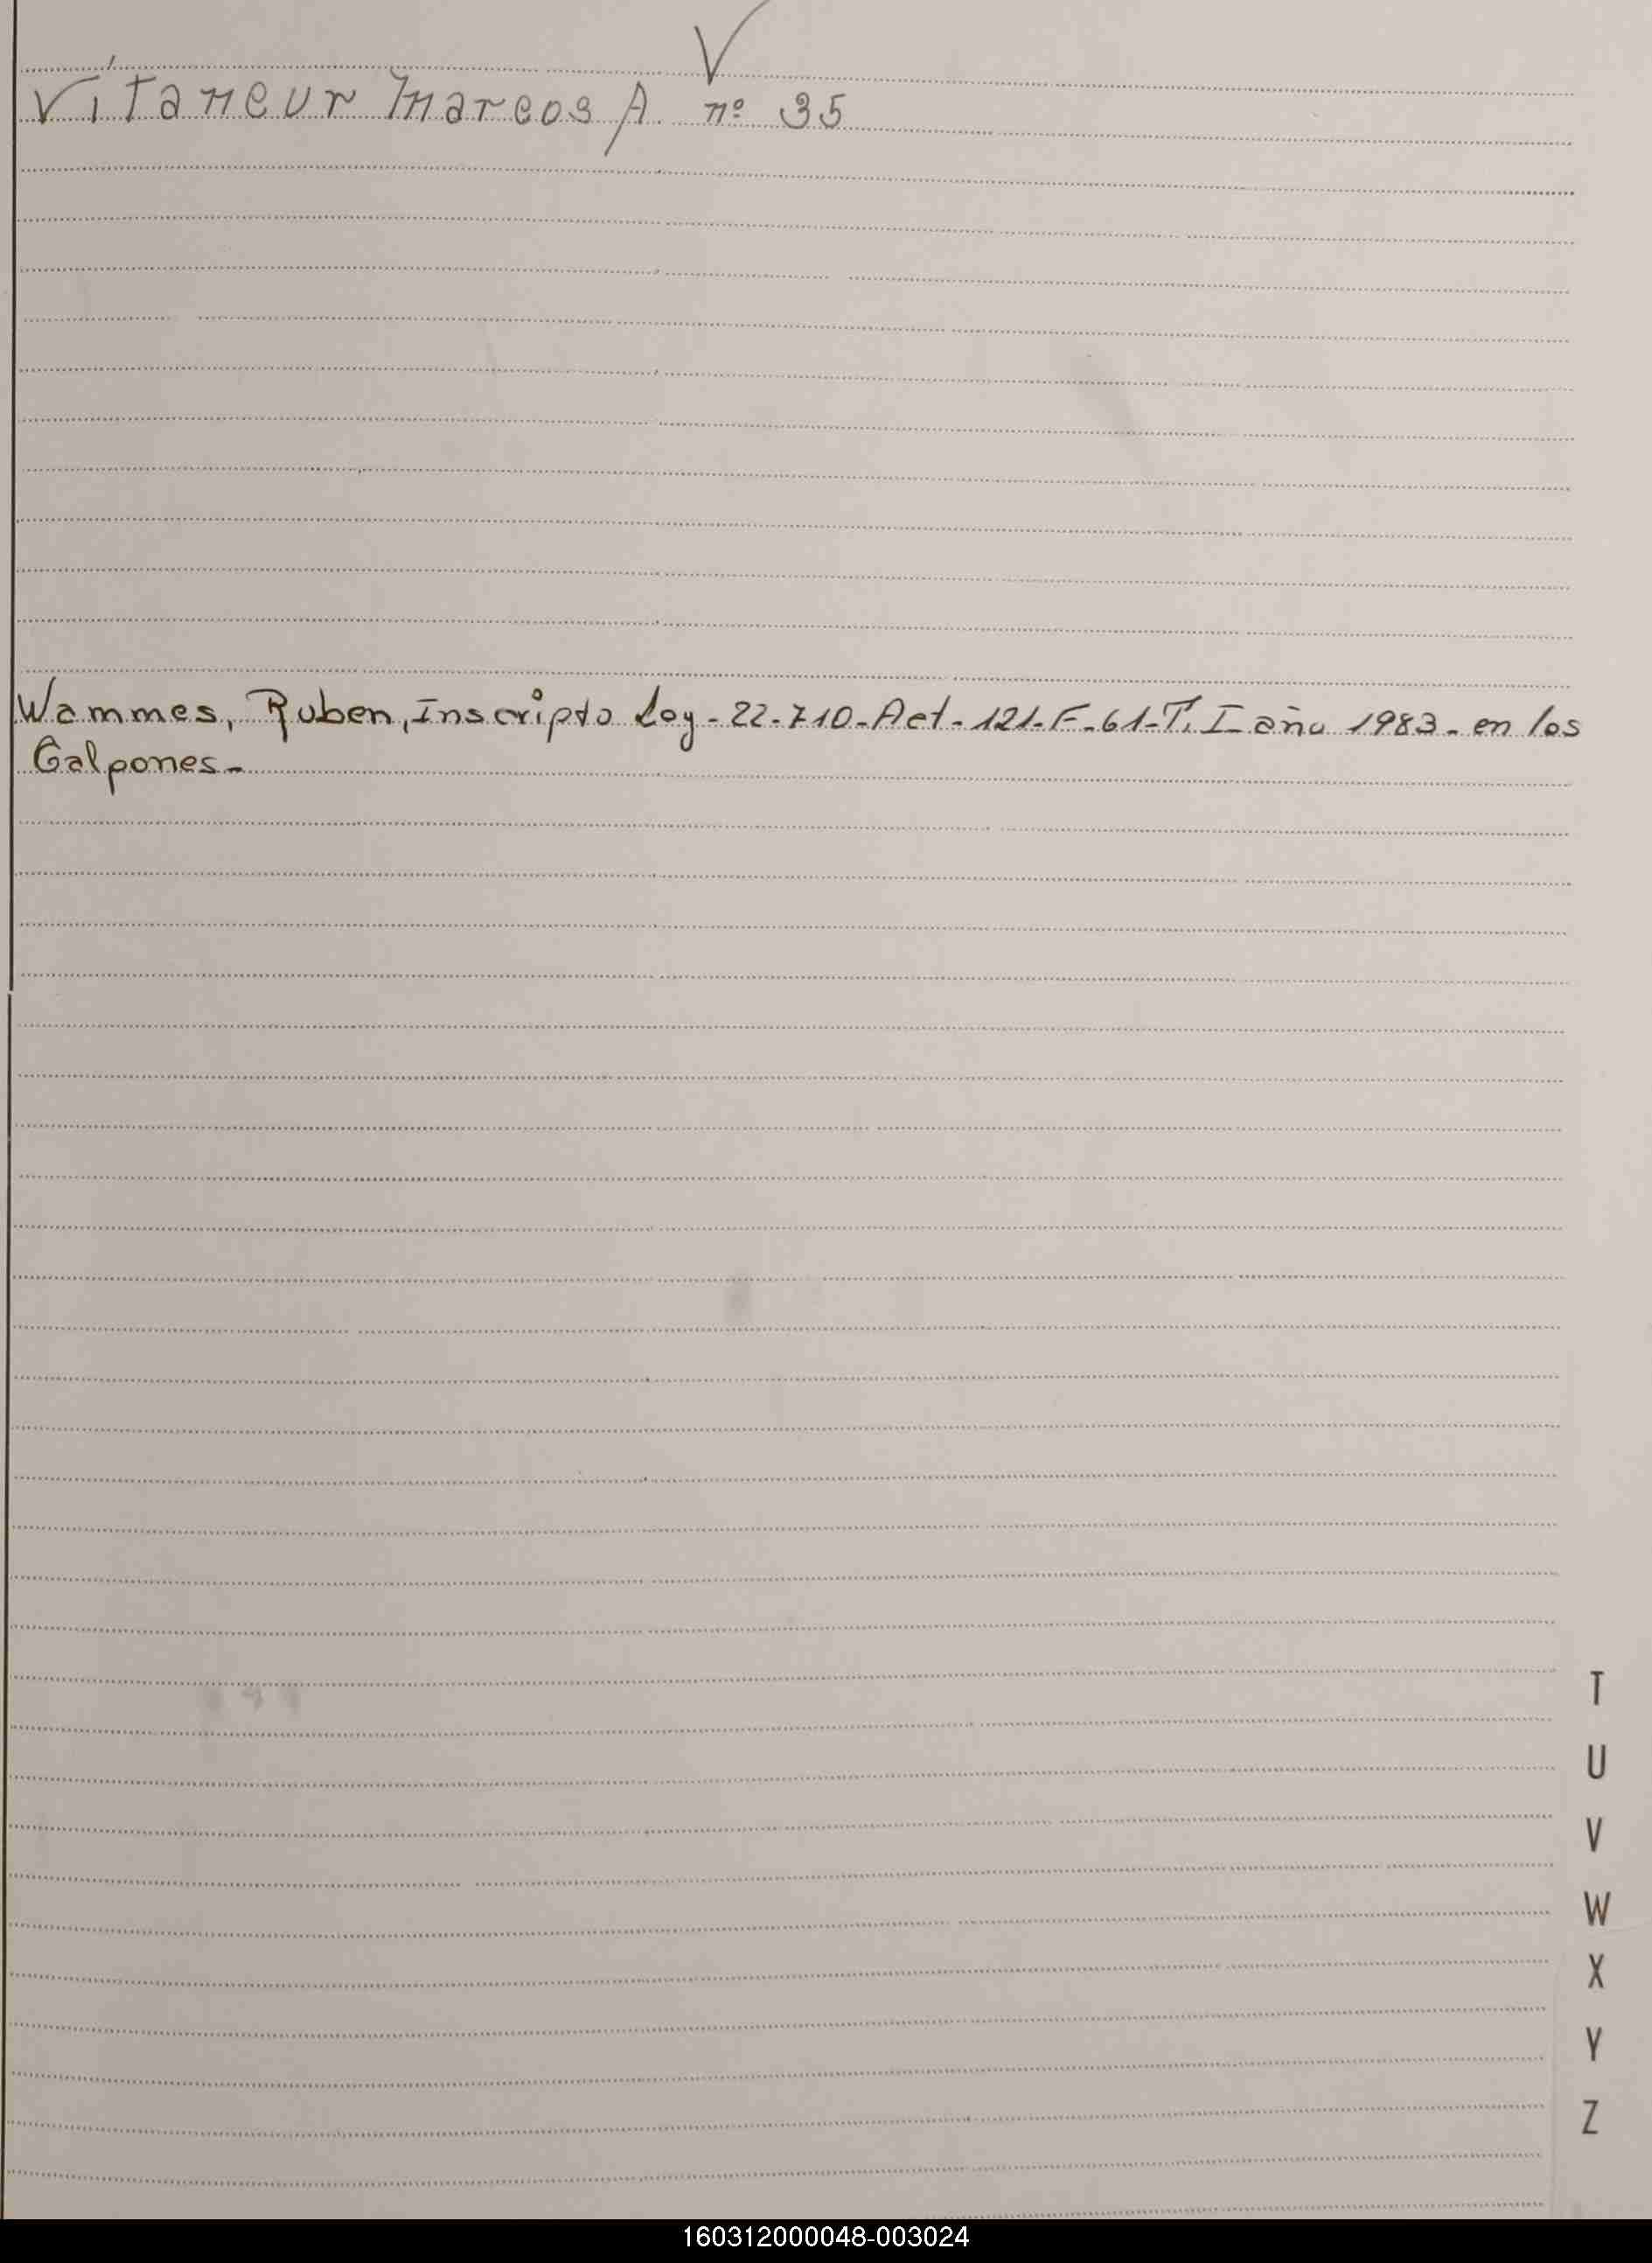 V
Vítaneur Marcos A. nº 35
Wammes, Ruben, Inscripto Ley - 22.710 - Act - 121 - F - 61 - T. I - año 1983 - en los
Galpones -
T
U
V
W
X
Y
Z
160312000048-003024